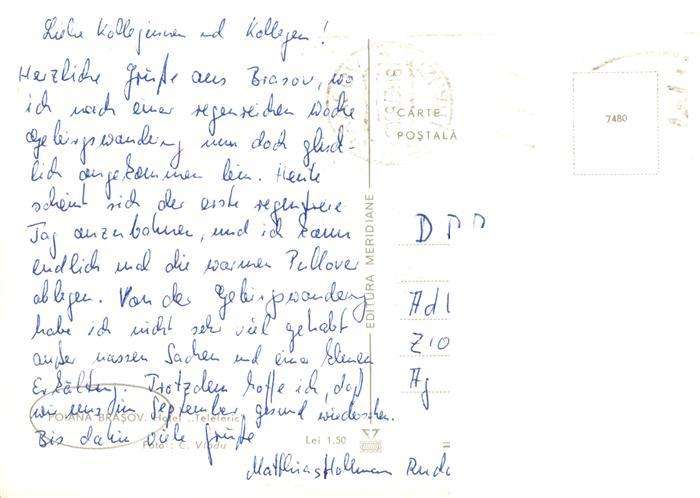 Liebe Kolleginnen und Kollegen!
Herzliche Grüße aus Brasov, wo
ich nach einer regenreichen Woche
Gebirgswanderung nun doch glück-
lich angekommen bin. Heute
scheint sich der erste regenfreie
Tag anzubahnen, und ich kann
endlich mal die warmen Pullover
ablegen. Von der Gebirgswanderung
habe ich nicht sehr viel gehabt
außer nassen Sachen und einer kleinen
Erkältung. Trotzdem hoffe ich, daß
wir uns im September gesund wiedersehen.
Bis dahin viele Grüße
Matthias Hollmann
POIANA BRAȘOV. Hotel „Teleferic”
Foto: C. Vladu
Lei 1,50
EDITURA MERIDIANE
CARTE
POȘTALĂ
7480
D
Adl
Zio
Ag